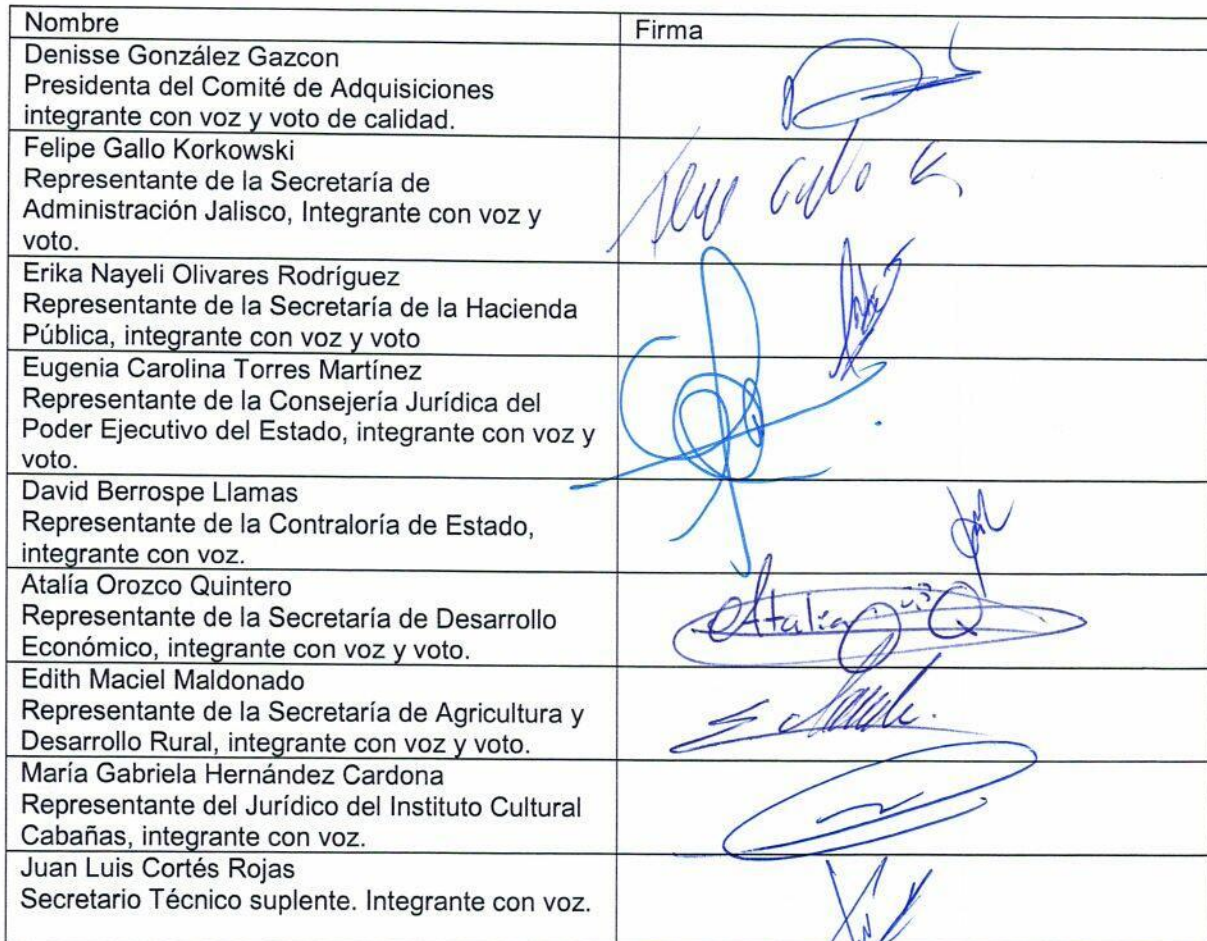 Nombre
Firma
Denisse González Gazcon
Presidenta del Comité de Adquisiciones
integrante con voz y voto de calidad.
Felipe Gallo Korkowski
Representante de la Secretaría de
Administración Jalisco, Integrante con voz y
voto.
Gallo K
Erika Nayeli Olivares Rodríguez
Representante de la Secretaría de la Hacienda
Pública, integrante con voz y voto
Eugenia Carolina Torres Martínez
Representante de la Consejería Jurídica del
Poder Ejecutivo del Estado, integrante con voz y
voto.
David Berrospe Llamas
Representante de la Contraloría de Estado,
integrante con voz.
Atalía Orozco Quintero
Representante de la Secretaría de Desarrollo
Económico, integrante con voz y voto.
Atalia O Q
Edith Maciel Maldonado
Representante de la Secretaría de Agricultura y
Desarrollo Rural, integrante con voz y voto.
María Gabriela Hernández Cardona
Representante del Jurídico del Instituto Cultural
Cabañas, integrante con voz.
Juan Luis Cortés Rojas
Secretario Técnico suplente. Integrante con voz.